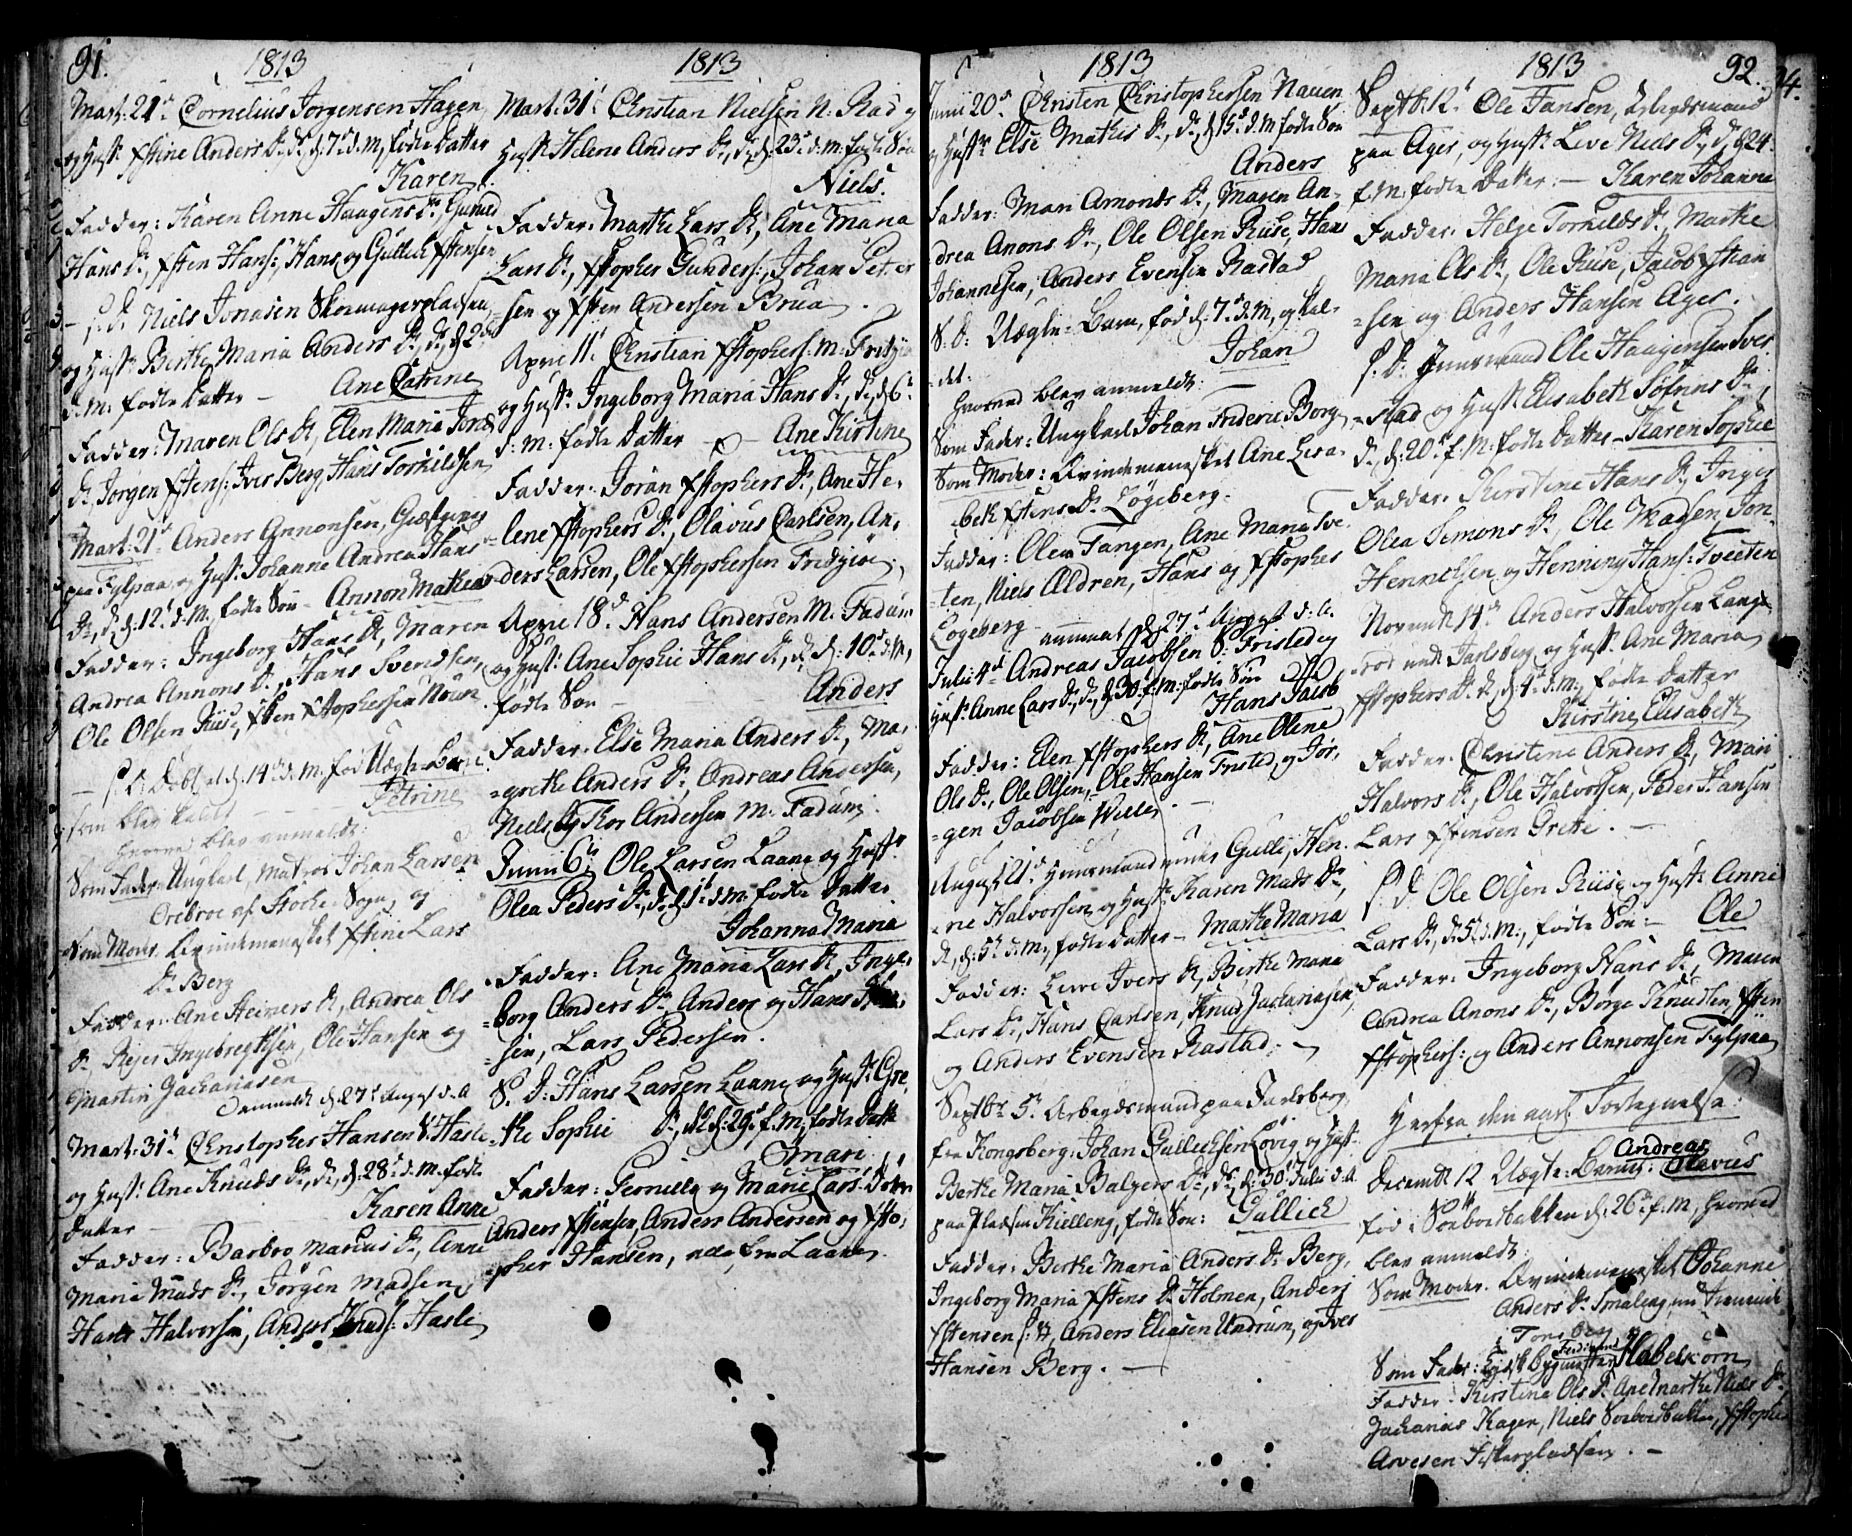 91.
1813
Mart: 21de Cornelius Jorgensen Hagen
og Hust: Xstine Anders Dr, d. 7de d. M, fødte Datter
Karen
Fadder: Karen Anne Haagens Dr, Gunild
Hans Dr, Xsten Hans: Hans og Gullich Xstensen
S. D. Niels Jonasen Skomagerpladsen
og Hust: Berthe Maria Anders Dr, d. 2de
d. M. fødte Datter - Ane Catrine
Fadder: Maren Ols Dr, Elen Maria Jord
Dr, Jorgen Xstens: Iver Berg, Hans Torkildsen
Mart: 21de Anders Annonsen, Giæstgiver
paa Fylpaa, og Hust: Johanne Andrea Hans
Dr, d. 12te d. M. fødte Søn - Annon Mathias
Fadder: Ingeborg Hans Dr, Maren
Andrea Annons Dr, Hans Svendsen,
Ole Olsen Ruse, Xsten Xstophersen Nouen
S. D. Døbt et d. 14de d. M. fød Uægte Barn
som blev kaldt - Petrine
hvorved blev anmeldt:
Som Fader Ungkarl, Matros Johan Larsen
Orebroe af Stocke Sogn, og
Som Moder Qvindemennesket Xstine Lars
Dr Berg
Fadder: Ane Heiners Dr, Andrea Ols
Dr Rejer Ingebregtsen, Ole Hansen og
Martin Zachariasen
Anmeldt d. 27de August d. A
Mart: 31te Christopher Hansen V: Hasle
og Hust: Ane Knuds Dr, d. 28de d. M. fødte
Datter Karen Anne
Fadder: Barbro Marcus Dr, Anne
Maria Mads Dr, Jørgen Madsen,
Hans Halvorsen, Anders Knuds: Hasle
1813
Mart: 31te Christian Nielsen N: Rad og
Hust: Helene Anders Dr, d. 23de d. M. fødte Søn
Niels.
Fadder: Marthe Lars Dr, Ane Maria
Lars Dr, Xstopher Gunders: Johan Peter
=sen og Xsten Andersen Brua
April 11te Christian Xstophers: M: Fridzøe
og Hust: Ingeborg Maria Hans Dr, d. 6te
d: M: fødte Datter - Ane Kirstine
Fadder: Joran Xstophers Dr, Ane He-
lene Xstophers Dr, Olavus Carlsen, An-
ders Larsen, Ole Xstophersen Fridzøe.
April 18de Hans Andersen M: Fadum
og Hust: Ane Sophie Hans Dr, d. 10de d. M,
fødte Søn - Anders
Fadder: Else Maria Anders Dr, Ma-
=grethe Anders Dr, Andreas Andersen,
Niels og Thor Andersen M: Fadum.
Junii 6te Ole Larsen Laane og Hust:
Olea Peders Dr, d. 1te d. M. fødte Datter
Johanna Maria
Fadder: Ane Maria Lars Dr, Inge-
=borg Anders Dr Anders og Hans
=sen, Lars Pedersen.
S. D: Hans Larsen Laane og Hust: Gre-
the Sophie Dr, d. 29de f. M. fødte Datt
Mari
Fadder: Pernille og Marie Lars Døtr
Anders Xstensen, Anders Andersen og Xsto-
=pher Hansen, alle fra Laane.
1813
Junii 20de Christen Christophersen Nauen
og Hust: Else Mathis Dr, d. 15de d. M fødte Søn
Anders
Fadder: Mari Amonds Dr, Maren An-
drea Anons Dr, Ole Olsen Ruse, Hans
Johannesen, Anders Evensen Rastad
S: D: Uægte Barn, fød d. 7de d. M, og kal-
=det. Johan
hvorved blev anmeldt:
Som Fader: Ungkarl Johan Frideric Borg
Som Moder: Qvindemennesket Ane Lisa-
beth Xstens Dr Løgeberg.
Fadder: Ole Tangen, Ane Maria Tve-
=ten, Niels Ældren, Hans og Xstopher
Løgeberg - anmeldt d. 27de August d. A.
Julii 4de Andreas Jacobsen S: Fristed og
Hust: Anne Lars Dr, d. 30te f. M. fødte Søn
Hans Jacob
Fadder: Elen Xstophers Dr, Ane Olene
Ols Dr, Ole Olsen, Ole Hansen Fristed, og Jør-
=gen Jacobsen Wille
August 21de Huusmand under Gulli, Hen-
=ric Halvorsen og Hust: Karen Mads Dr,
d. 5te d. M. fødte Datter - Marthe Maria
Fadder: Leve Ivers Dr, Berthe Maria
Lars Dr, Hans Carlsen, Knud Zachariasen,
og Anders Evensen Rastad.
Septbr 5te Arbeydsmand paa Jarlsberg,
fra Kongsberg, Johan Gullichsen Lovig og Hust:
Berthe Maria Balzers Dr, d. 30te Julii d. A
paa Pladsen Kielleng, fødte Søn: Gullich
Fadder: Berthe Maria Anders Dr Berg,
Ingeborg Maria Xstens Dr Holmen, Anders
Xstensen, Anders Eliasen Undrum, og Iver
Hansen Berg.
1813
92.
Septbr: 12te Ole Jansen, Arbeydsmand
paa Ager, og Hust: Leve Niels Dr, d. 24
f. M: fødte Datter: - Karen Johanne
Fadder: Helge Torkilds Dr, Marthe
Maria Ols Dr, Ole Ruse, Jacob Xstian
=sen og Anders Hansen Ager.
S. D. Huusmand Ole Haagensen Iver
=stad og Hust: Elisabeth Sofrens Dr,
d. 20de f. M. fødte Datter - Karen Sophie
Fadder: Kirstine Hans Dr, Inger
Olea Simons Dr, Ole Madsen, Jon
Henrichsen og Henning Hans: Tveeten
Novembr 14de Anders Halvorsen Lange-
=rød und: Jarlsberg og Hust: Ane Maria
Xstophers Dr, d. 4de d. M. fødte Datter
Kirstine Elisabeth
Fadder: Christine Anders Dr, Mari
Halvors Dr, Ole Halvorsen, Peder Hansen
Lars Xstensen Grette.
S. D. Ole Olsen Riise og Hust: Anne
Lars Dr, d. 5te d. M., fødte Søn: - Ole
Fadder: Ingeborg Hans Dr, Maren
Andrea Anons Dr, Borge Knudsen, Xsten
Xstophers: og Anders Annonsen Fylpaa
Herfra den aarl: Fortegnelse.
Decembr 12 Uægte: Barn: Andreas Olavus
fød i Sørbordbakken d. 26de f. M, hvorved
blev anmeldt:
Som Moder. Qvindemennesket Johanne
Anders Dr Smaleng
Tonsberg
Som Fader: Tydsk Bygmester Ferdinand Habelkorn
Fadder: Kirstina Ols Dr, Ane Marthe Niels Dr,
Zacharias Kager, Niels Sorbordbakken, Xstopher
Arvesen Fiskerpladsen.